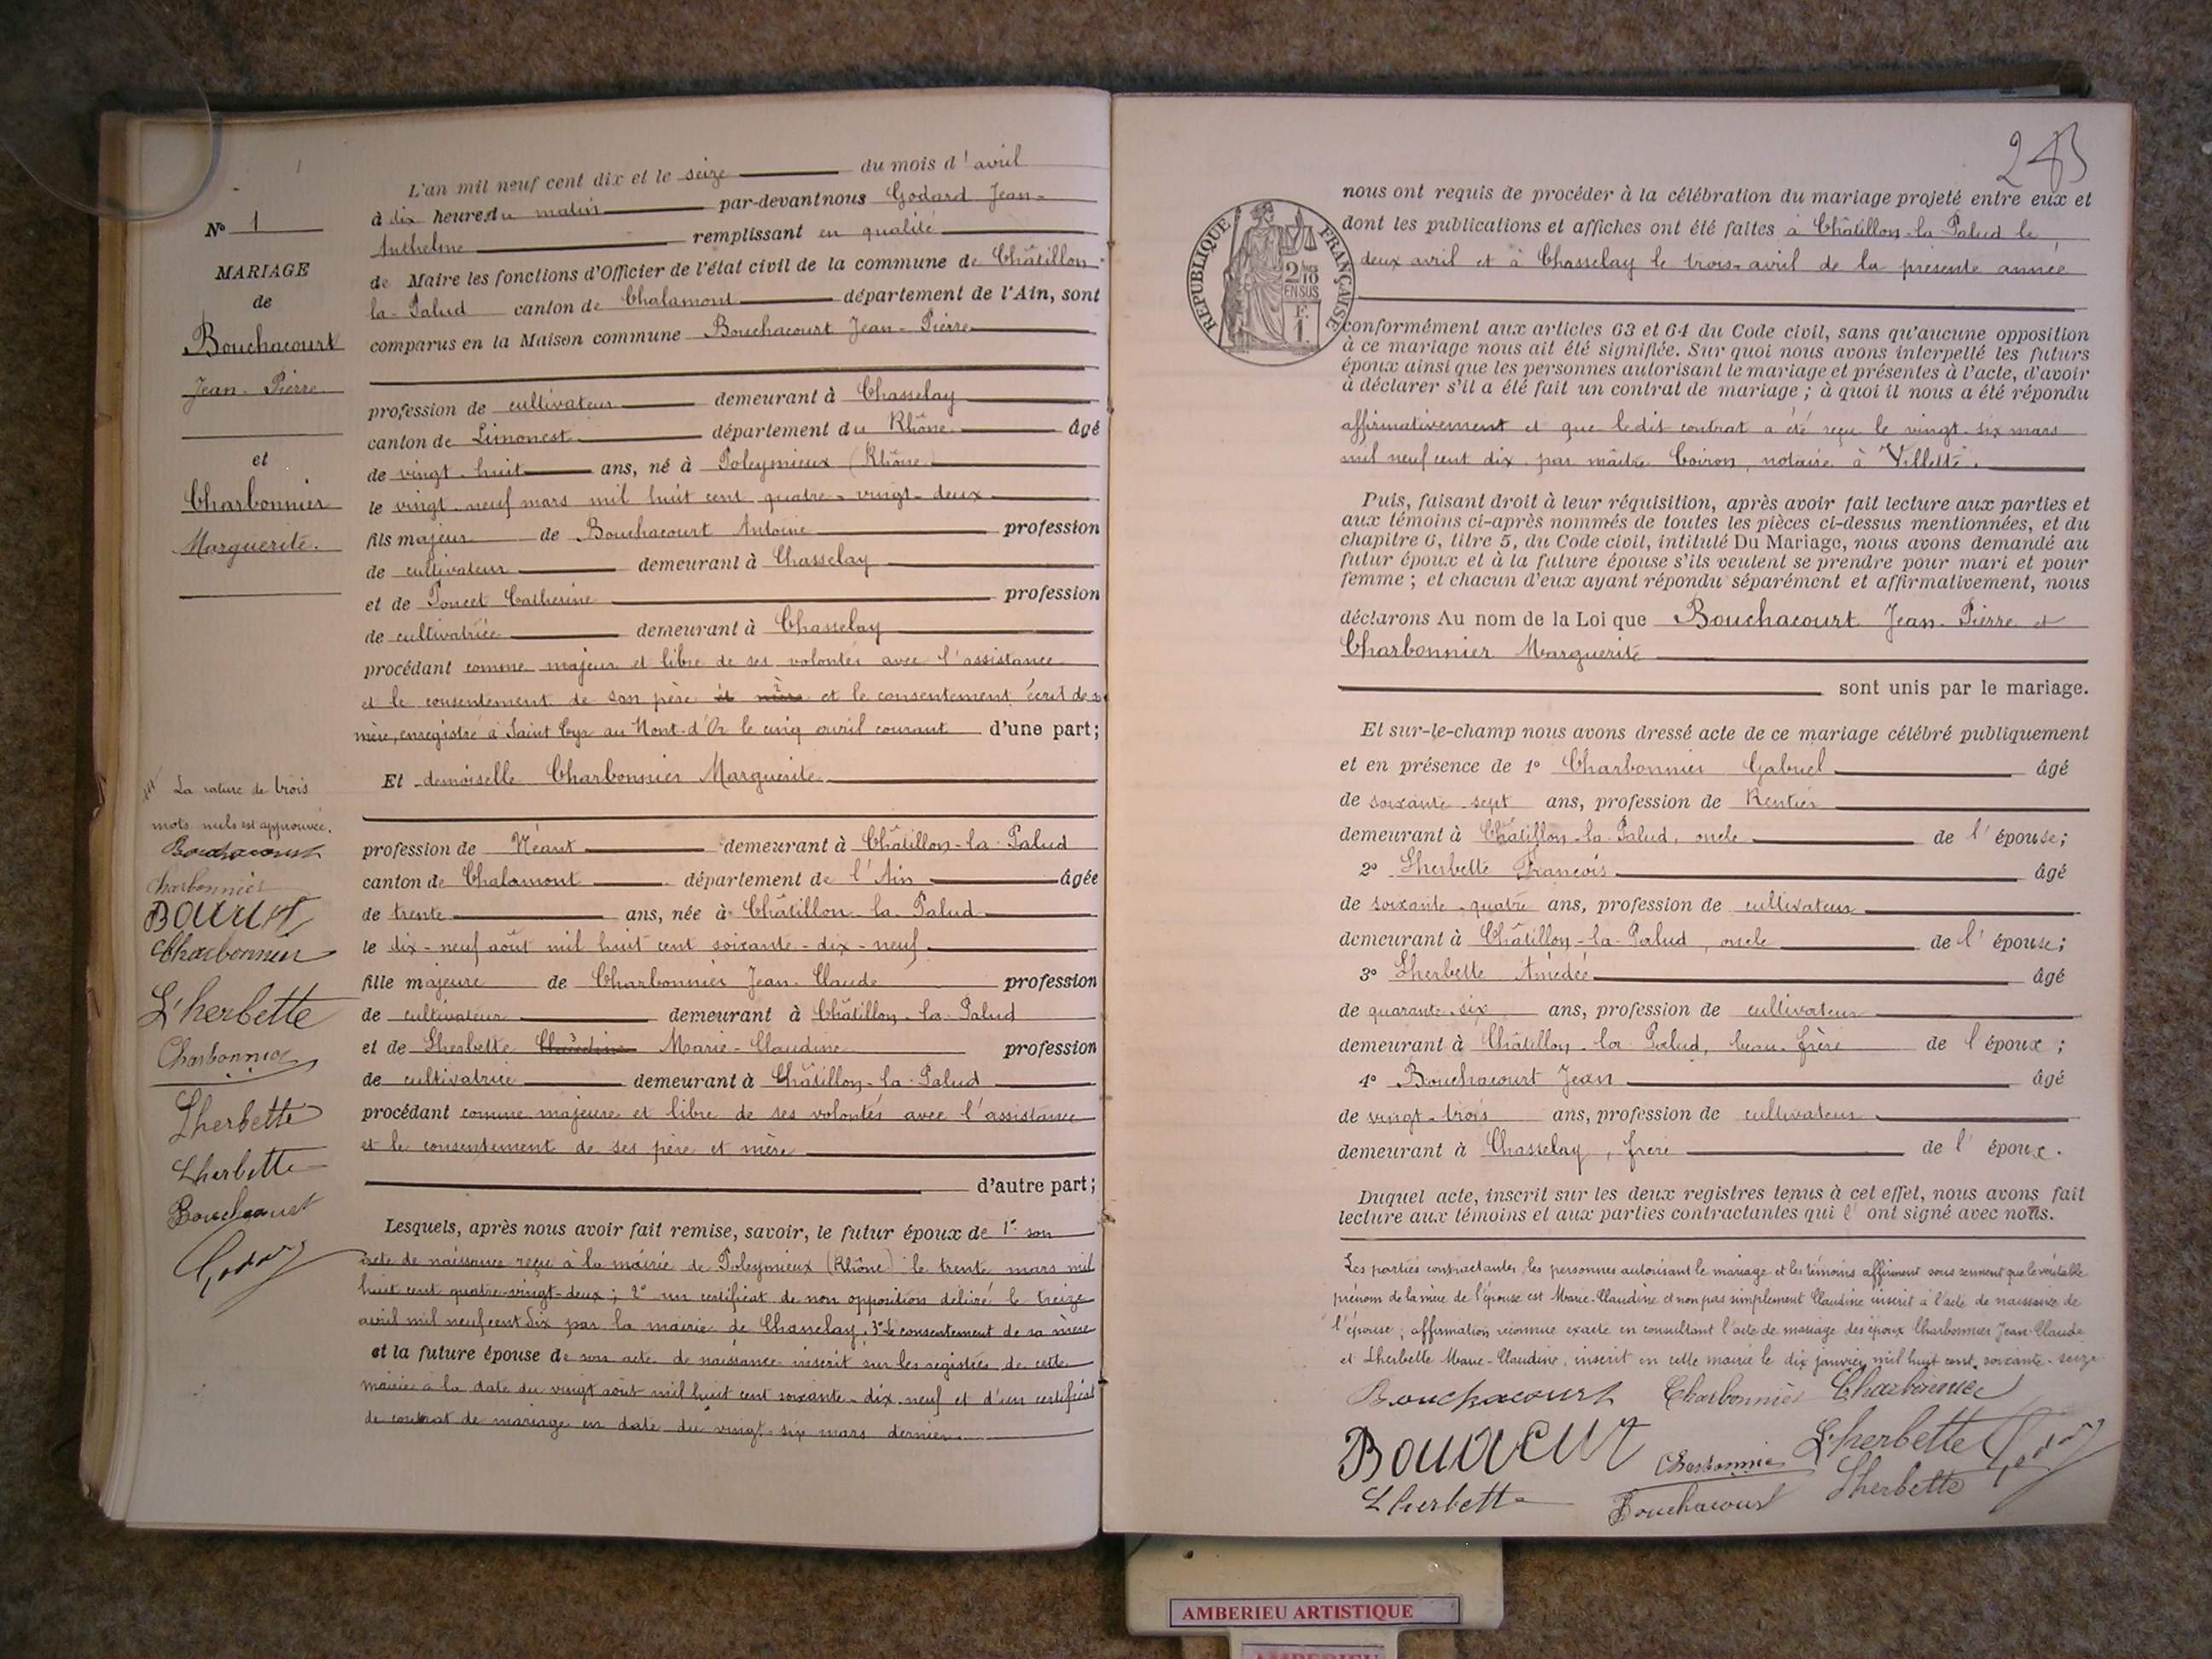 N° 1
MARIAGE
de
Bouchacourt
Jean-Pierre
et
Charbonnier
Marguerite.
L'an mil neuf cent dix et le seize du mois d'avril
à dix heures du matin par-devant nous Godard Jean-
Anthelme remplissant en qualité
de Maire les fonctions d'Officier de l'état civil de la commune de Châtillon-
la-Palud canton de Chalamont département de l'Ain, sont
comparus en la Maison commune Bouchacourt Jean-Pierre
profession de cultivateur demeurant à Chasselay
canton de Limonest département du Rhône âgé
de vingt-huit ans, né à Poleymieux (Rhône)
le vingt-neuf mars mil huit cent quatre-vingt-deux
fils majeur de Bouchacourt Antoine profession
de cultivateur demeurant à Chasselay
et de Poncet Catherine profession
de cultivatrice demeurant à Chasselay
procédant comme majeur et libre de ses volontés avec l'assistance
et le consentement de son père et mère et le consentement écrit de sa
mère, enregistré à Saint Cyr au Mont-d'Or le cinq avril courant d'une part;
Et demoiselle Charbonnier Marguerite
profession de Néant demeurant à Châtillon-la-Palud
canton de Chalamont département de l'Ain âgée
de trente ans, née à Châtillon-la-Palud
le dix-neuf août mil huit cent soixante-dix-neuf
fille majeure de Charbonnier Jean-Claude profession
de cultivateur demeurant à Châtillon-la-Palud
et de Lherbette Claudine Marie-Claudine profession
de cultivatrice demeurant à Châtillon-la-Palud
procédant comme majeure et libre de ses volontés avec l'assistance
et le consentement de ses père et mère
d'autre part;
Lesquels, après nous avoir fait remise, savoir, le futur époux de 1° son
acte de naissance reçu à la mairie de Poleymieux (Rhône) le trente mars mil
huit cent quatre-vingt-deux; 2° un certificat de non opposition délivré le treize
avril mil neuf cent dix par la mairie de Chasselay, 3° Le consentement de sa mère
et la future épouse de son acte de naissance inscrit sur les registres de cette
mairie à la date du vingt août mil huit cent soixante-dix-neuf et d'un certificat
de contrat de mariage en date du vingt-six mars dernier.
La rature de trois
mots nuls est approuvée.
Bouchacourt
Charbonnier
Charbonnier
L'herbette
Charbonnier
Lherbette
Lherbette
Bouchacourt
Godard
283
RÉPUBLIQUE FRANÇAISE
2/10
EN SUS
F.
1.
nous ont requis de procéder à la célébration du mariage projeté entre eux et
dont les publications et affiches ont été faites à Châtillon-la-Palud le
deux avril et à Chasselay le trois avril de la présente année
conformément aux articles 63 et 64 du Code civil, sans qu'aucune opposition
à ce mariage nous ait été signifiée. Sur quoi nous avons interpellé les futurs
époux ainsi que les personnes autorisant le mariage et présentes à l'acte, d'avoir
à déclarer s'il a été fait un contrat de mariage; à quoi il nous a été répondu
affirmativement et que ledit contrat a été reçu le vingt-six mars
mil neuf cent dix par maître Coiron, notaire à Villette.
Puis, faisant droit à leur réquisition, après avoir fait lecture aux parties et
aux témoins ci-après nommés de toutes les pièces ci-dessus mentionnées, et du
chapitre 6, titre 5, du Code civil, intitulé Du Mariage, nous avons demandé au
futur époux et à la future épouse s'ils veulent se prendre pour mari et pour
femme; et chacun d'eux ayant répondu séparément et affirmativement, nous
déclarons Au nom de la Loi que Bouchacourt Jean-Pierre et
Charbonnier Marguerite
sont unis par le mariage.
Et sur-le-champ nous avons dressé acte de ce mariage célébré publiquement
et en présence de 1° Charbonnier Gabriel âgé
de soixante-sept ans, profession de Rentier
demeurant à Châtillon-la-Palud, oncle de l'épouse;
2° Lherbette François âgé
de soixante-quatre ans, profession de cultivateur
demeurant à Châtillon-la-Palud, oncle de l'épouse;
3° Lherbette Amédée âgé
de quarante-six ans, profession de cultivateur
demeurant à Châtillon-la-Palud, beau-frère de l'époux;
4° Bouchacourt Jean âgé
de vingt-trois ans, profession de cultivateur
demeurant à Chasselay, frère de l'époux.
Duquel acte, inscrit sur les deux registres tenus à cet effet, nous avons fait
lecture aux témoins et aux parties contractantes qui l'ont signé avec nous.
Les parties contractantes, les personnes autorisant le mariage et les témoins affirment sous serment que le véritable
prénom de la mère de l'épouse est Marie-Claudine et non pas simplement Claudine inscrit à l'acte de naissance de
l'épouse; affirmation reconnue exacte en consultant l'acte de mariage des époux Charbonnier Jean-Claude
et Lherbette Marie-Claudine, inscrit en cette mairie le dix janvier mil huit cent soixante-seize
Bouchacourt Charbonnier Charbonnier
Charbonnier L'herbette Godard
Lherbette Bouchacourt Lherbette
AMBERIEU ARTISTIQUE
AMBERIEU